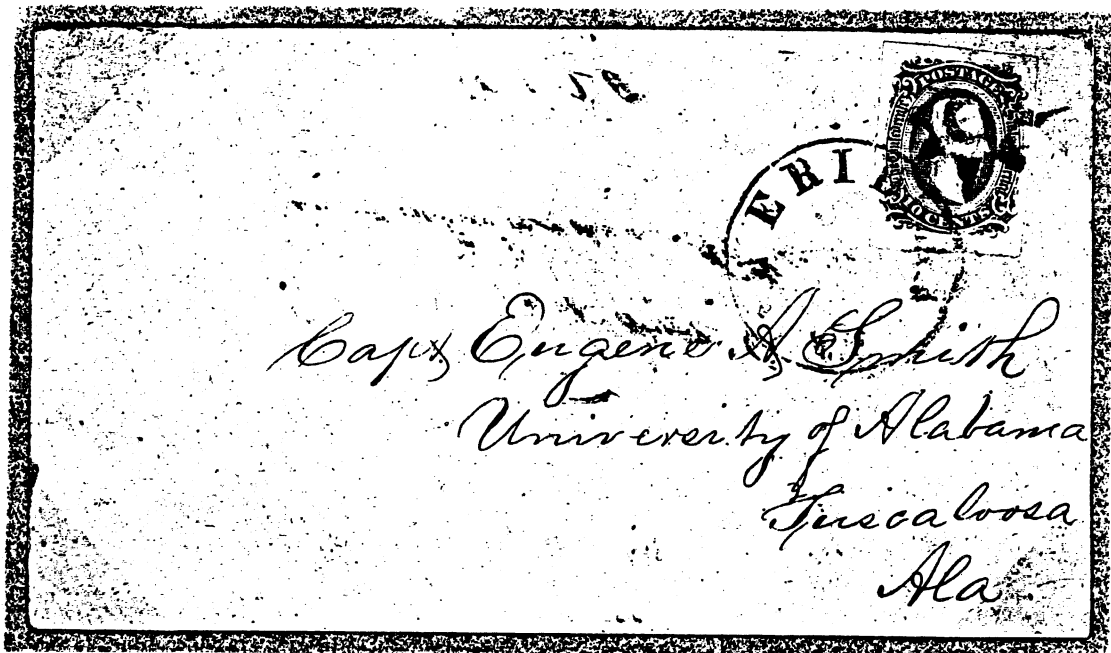 POSTAGE
Capt Eugene A Smith
University of Alabama
Tuscaloosa
Ala